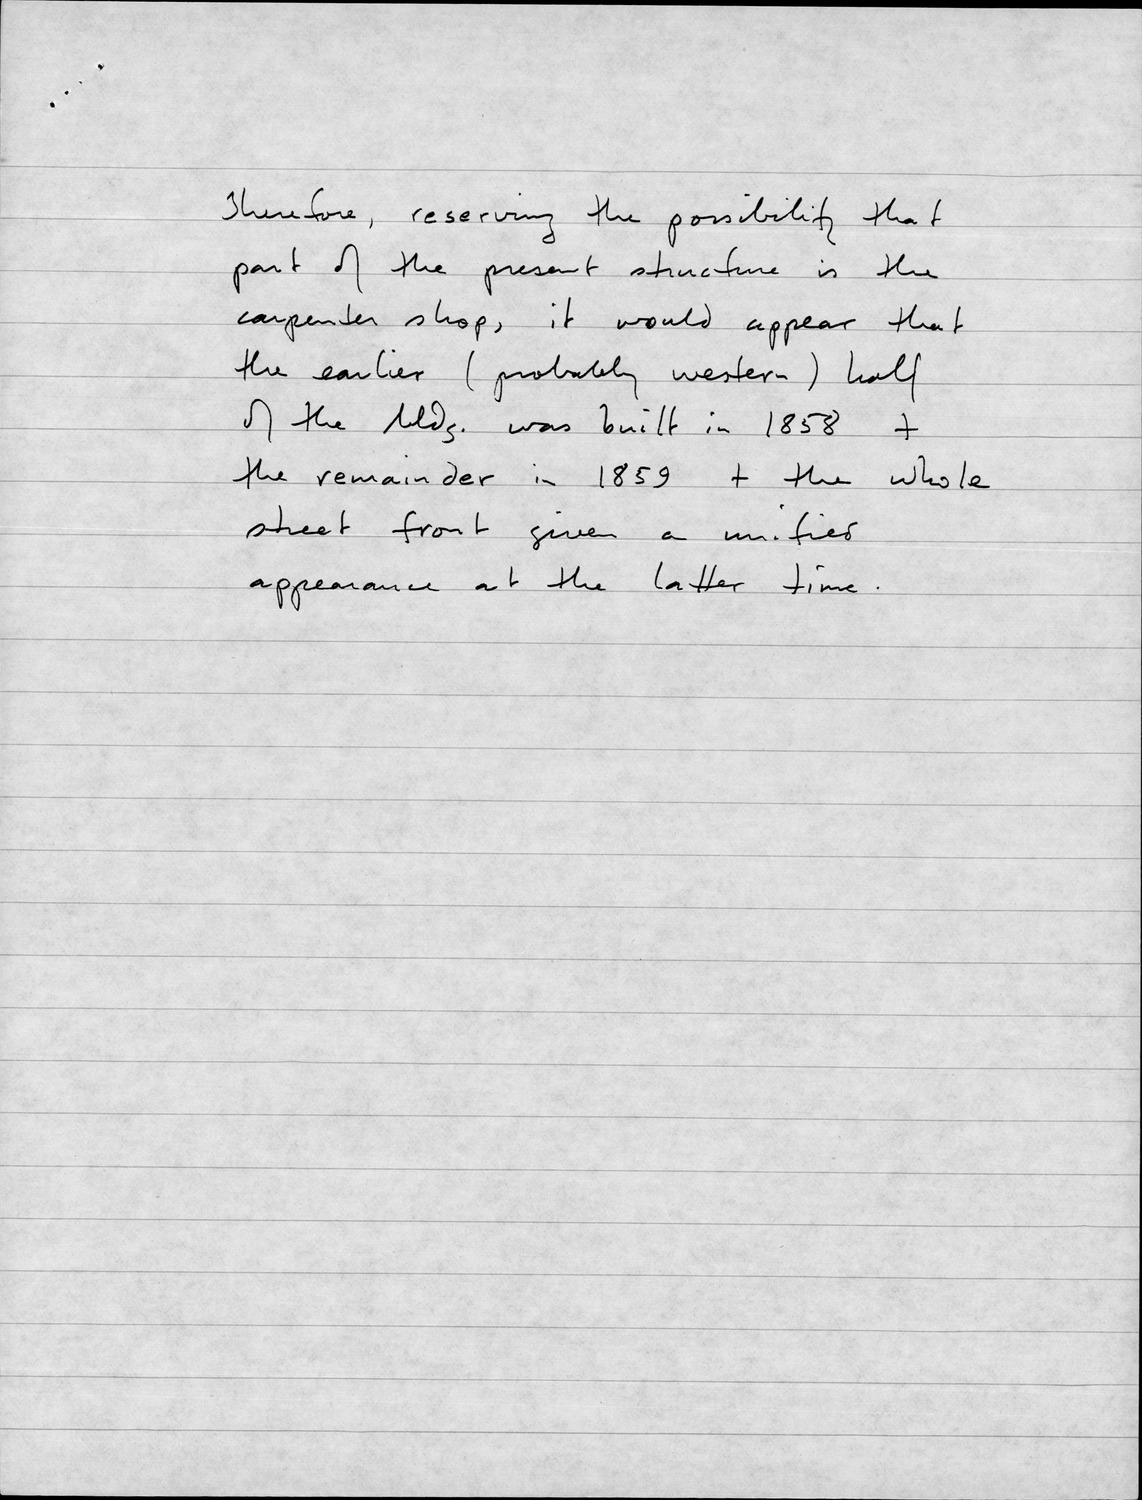 Therefore, reserving the possibility that
part of the present structure is the
carpenter shop, it would appear that
the earlier (probably western) half
of the bldg. was built in 1858 +
the remainder in 1859 + the whole
street front given a unified
appearance at the latter time.